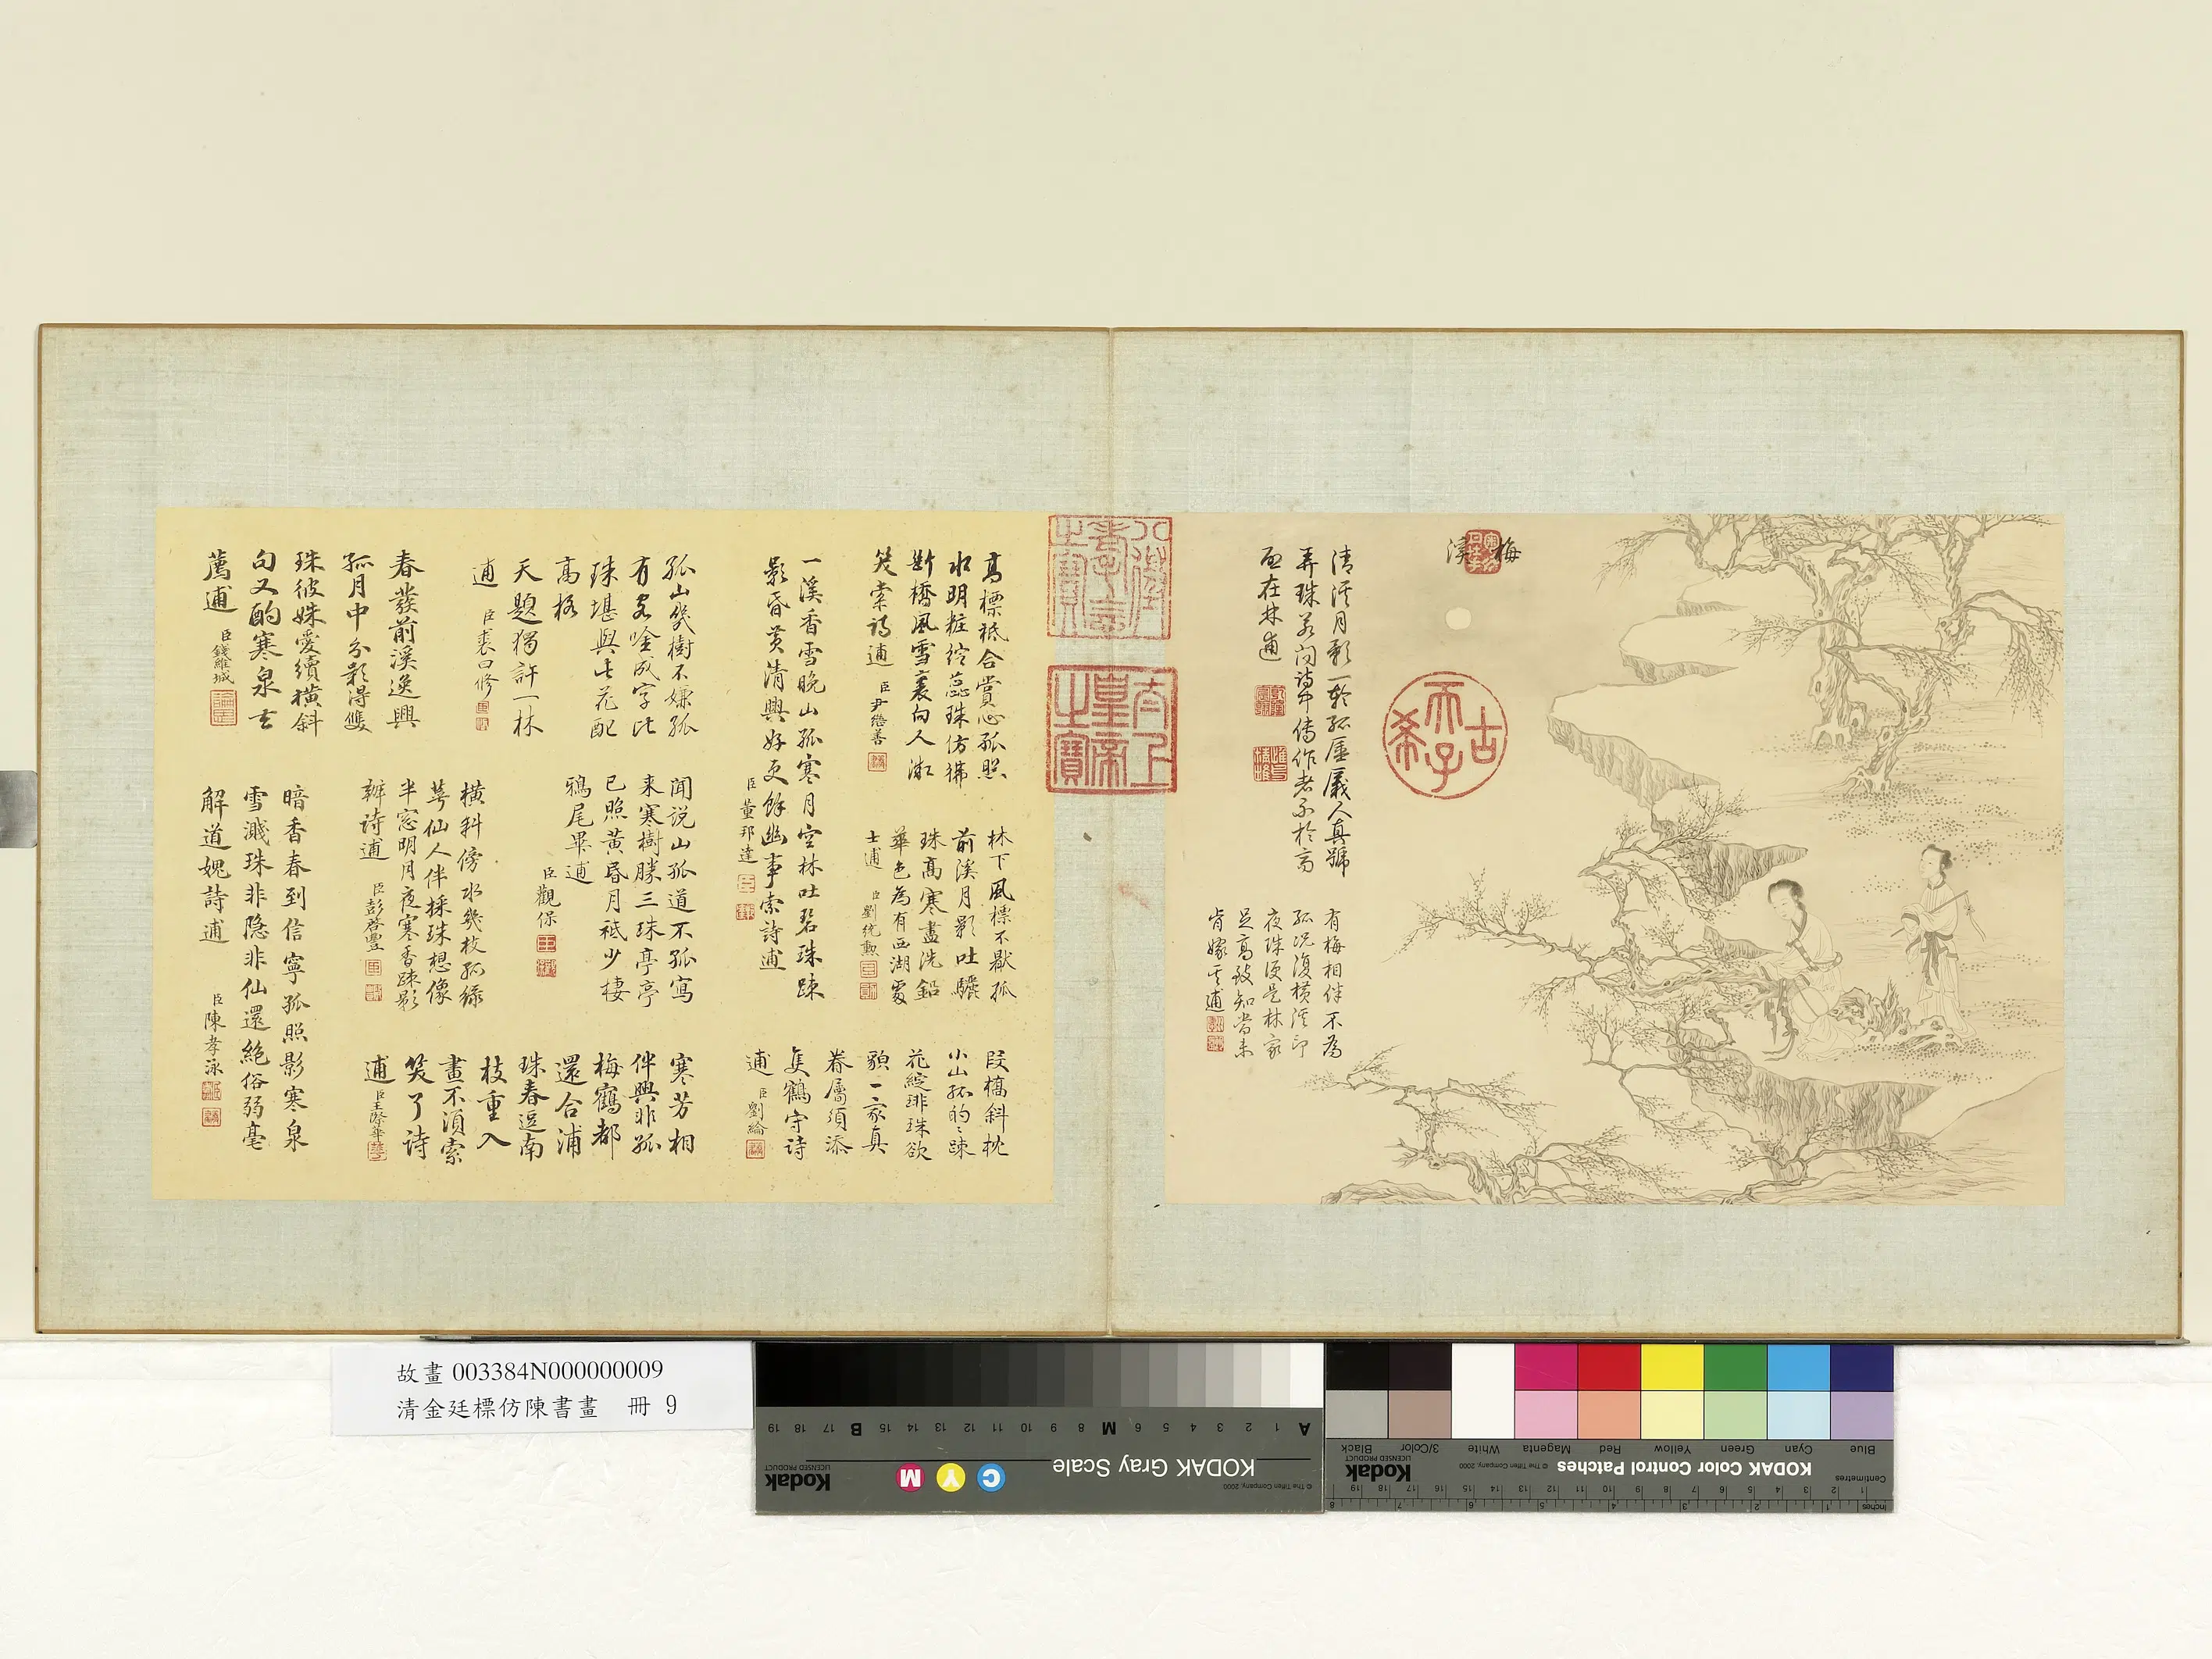 梅溪
清溪月影一輪孤屢屢人真號
弄珠若問詩中傳作者不於高
古在林逋
有梅相伴不為
孤况復橫溪印
夜珠便是林家
足高致知當未
肯嫁其逋
古希天子
八徵耄念之寶
太上皇帝之寶
高標祗合賞心孤照
水明粧綻蕊珠仿彿
斷橋風雪裏向人漱
笑索詩逋 臣尹繼善
林下風標不厭孤
前溪月影吐驪
珠高寒盡洗鉛
華色為有西湖處
士逋 臣劉統勳
段橋斜枕
小山孤的〻踈
花綻琲珠欲
貌一家真
眷屬須添
隻鶴守詩
逋 臣劉綸
一溪香雪晚山孤寒月空林吐碧珠踈
影昏黃清興好更餘幽事索詩逋
臣董邦達
孤山幾樹不嫌孤
有客唫成字比
珠堪與此花配
高格
天題獨許一林
逋 臣裘曰修
聞說山孤道不孤寫
来寒樹勝三珠亭亭
已照黃昏月祗少棲
鴉尾畢逋
臣觀保
寒芳相
伴興非孤
梅鶴都
還合浦
珠春逗南
枝重入
畫不須索
笑了詩
逋 臣王際華
春發前溪逸興
孤月中分影得雙
珠彼姝愛續橫斜
句又酌寒泉去
薦逋 臣錢維城
橫斜傍水幾枝孤綠
萼仙人伴採珠想像
半窓明月夜寒香踈影
辦詩逋 臣彭啓豐
暗香春到信寧孤照影寒泉
雪濺珠非隐非仙還絕俗弱毫
解道媿詩逋 臣陳孝泳
故畫 003384N000000009
清金廷標仿陳書畫 冊 9
KODAK Gray Scale
Kodak
LICENSED PRODUCT
© The Tiffen Company, 2000
C Y M
A 1 2 3 4 5 6 M 8 9 10 11 12 13 14 15 B 17 18 19
KODAK Color Control Patches
© The Tiffen Company, 2000
Kodak
LICENSED PRODUCT
Blue Cyan Green Yellow Red Magenta White 3/Color Black
Centimetres
Inches